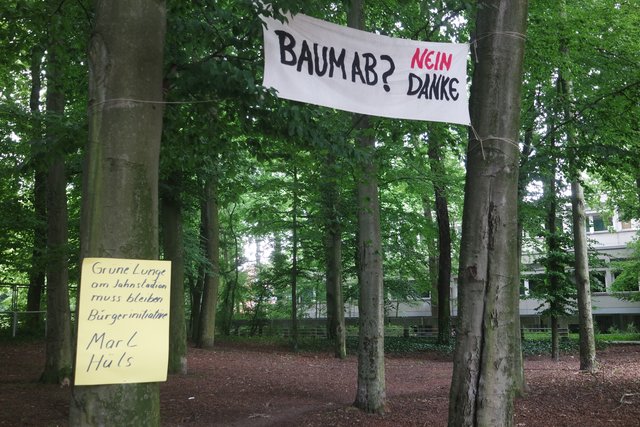 BAUM AB? NEIN
DANKE
Grüne Lunge
am Jahnstadion
muss bleiben
Bürgerinitiative
Marl
Hüls